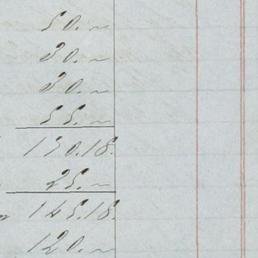 50.~
30.~
30.~
55.~
170.18.
25.~
145.18.
120.~